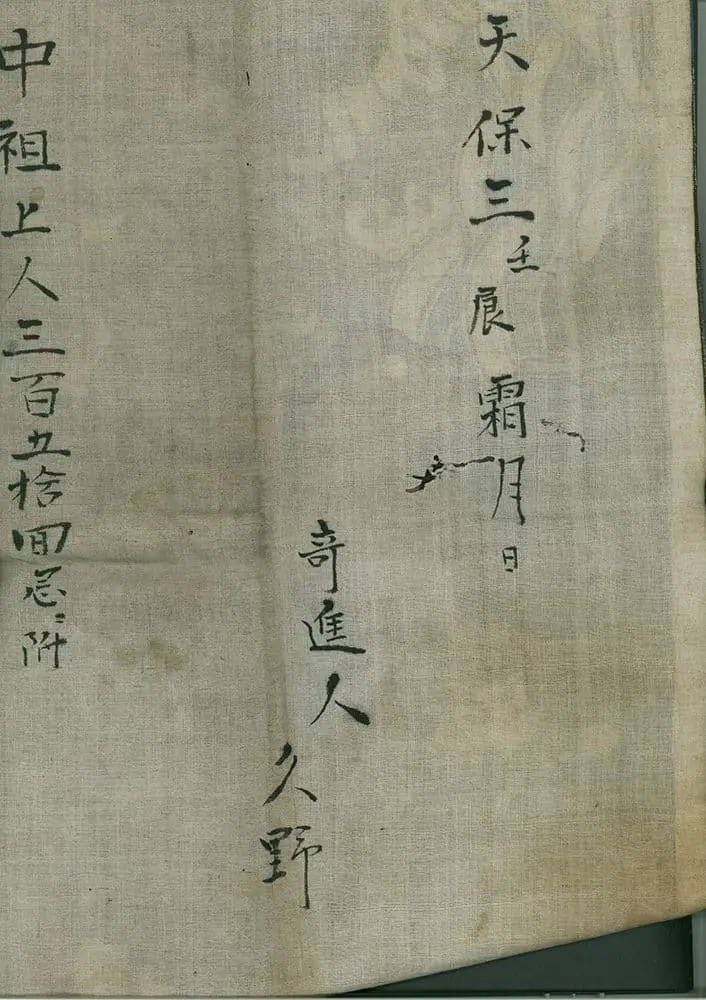 天保三壬辰霜月日
奇進人
久野
中祖上人三百五拾回忌ニ附